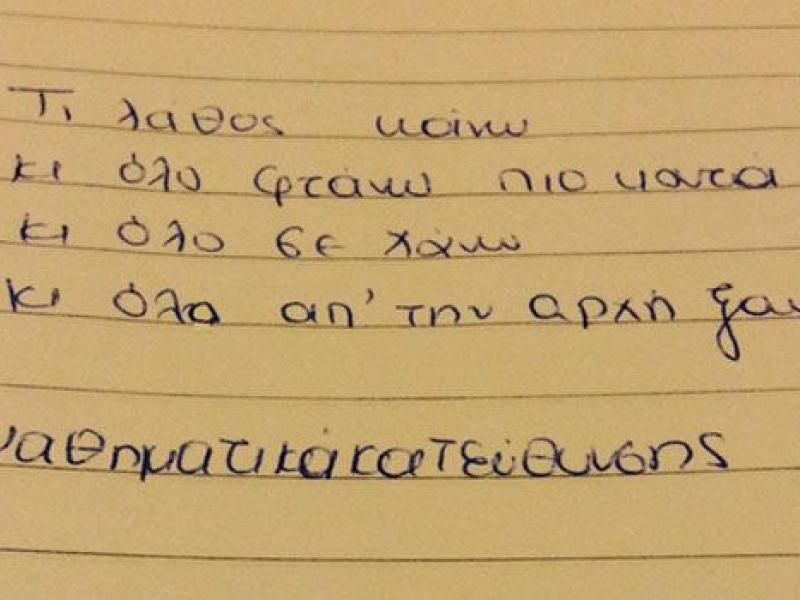 Τι λάθος κάνω
κι όλο φτάνω πιο κοντά
κι όλο σε χάνω
κι όλα απ' την αρχή ξαν
μαθηματικάκατεύθυνσης